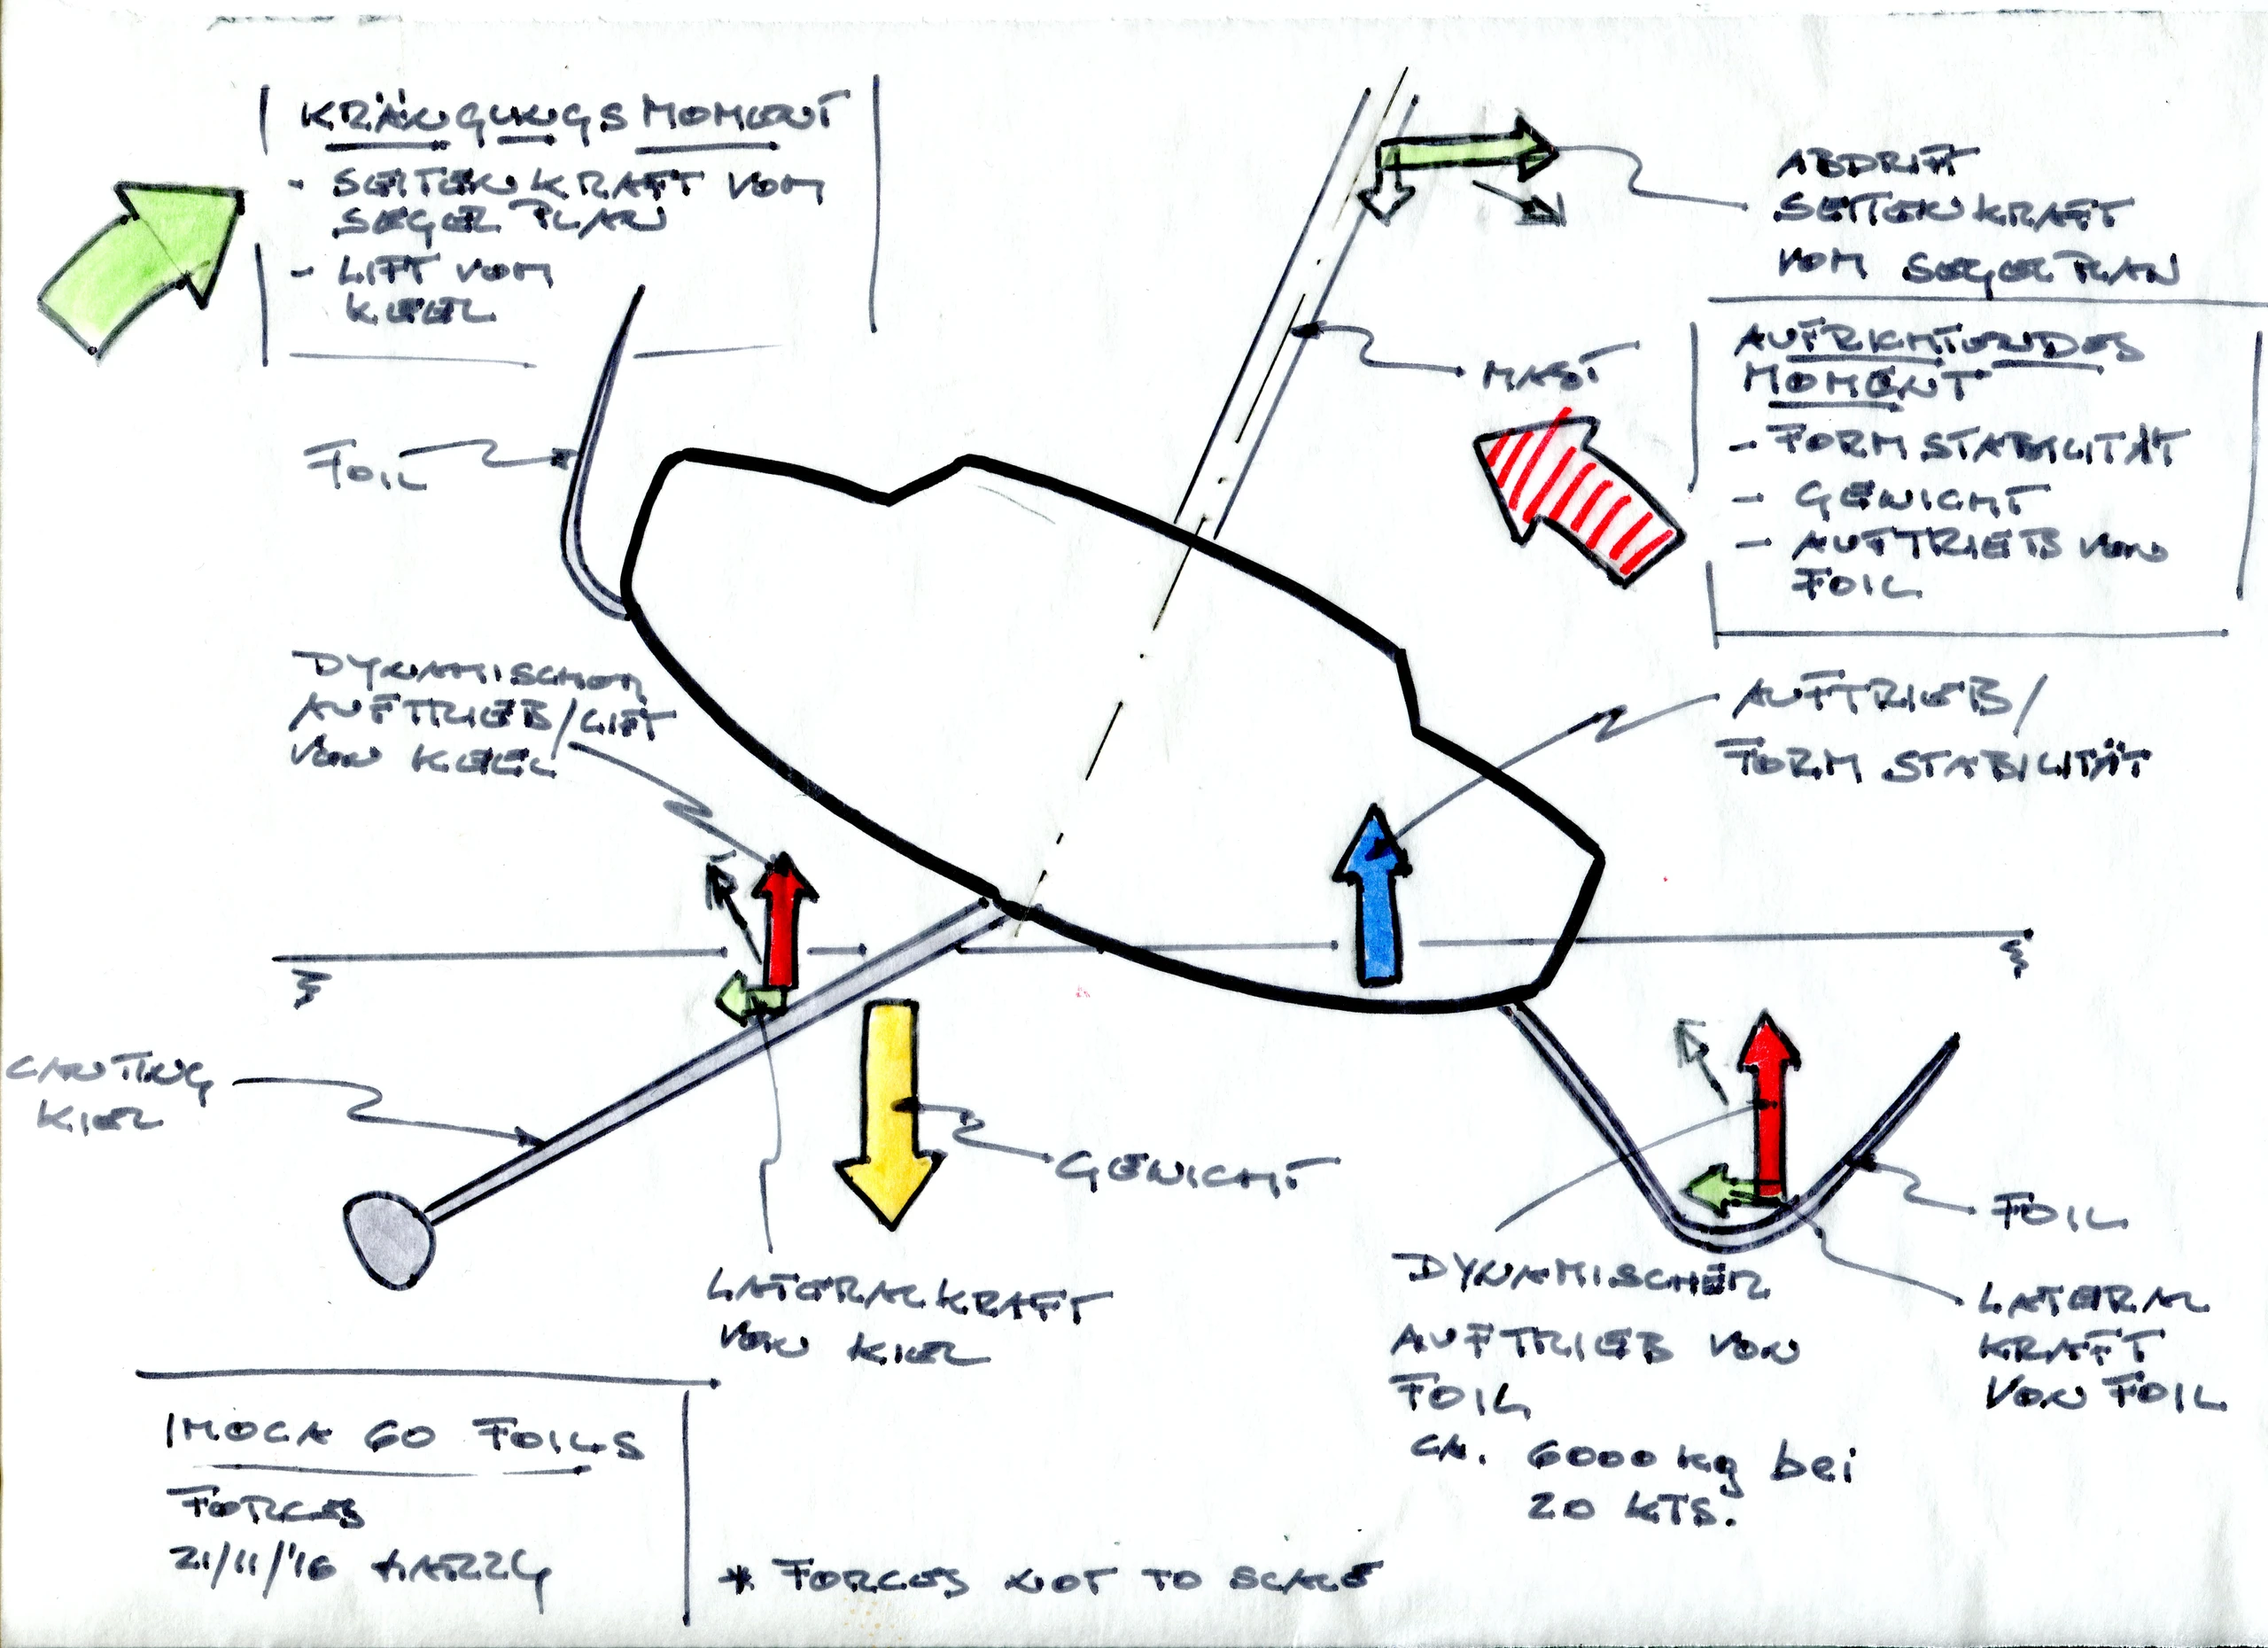 KRÄNGUNGSMOMENT
- SEITENKRAFT VOM
SEGELPLAN
- LIFT VOM
KEEL
ABDRIFT
SEITENKRAFT
VOM SEGELPLAN
MAST
AUFRICHTENDES
MOMENT
- FORMSTABILITÄT
- GEWICHT
- AUFTRIEB VON
FOIL
FOIL
DYNAMISCHER
AUFTRIEB/LIFT
VON KEEL
AUFTRIEB/
FORMSTABILITÄT
CANTING
KIEL
GEWICHT
LATERALKRAFT
VON KIEL
FOIL
DYNAMISCHER
AUFTRIEB VON
FOIL
CA. 6000 kg bei
20 KTS.
LATERAL
KRAFT
VON FOIL
IMOCA 60 FOILS
FORCES
21/11/'16 HARRY
* FORCES NOT TO SCALE